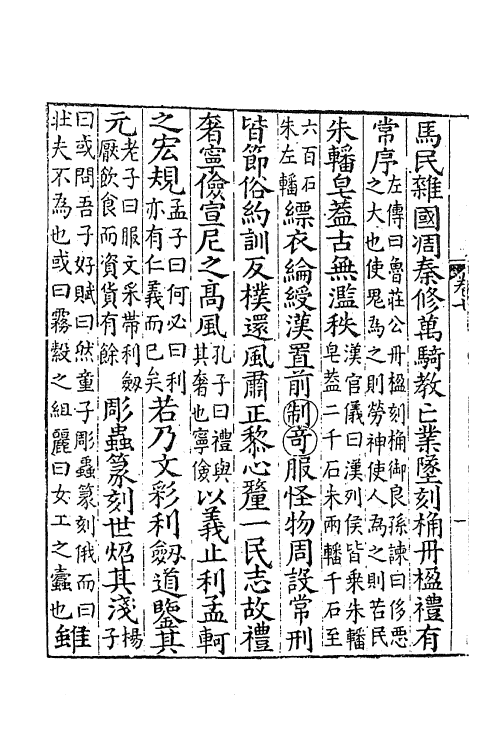 馬民雜國凋秦修萬騎教亡業墜刻桷丹楹禮有
常序左傳曰魯莊公丹楹刻桷御良孫諫曰侈惡
之大也使鬼為之則勞神使人為之則苦民
朱轓皁蓋古無濫秩漢官儀曰漢列侯皆乗朱轓
皁蓋二千石朱兩轓千石至
六百石
朱左轓縹衣綸綬漢置前制竒服怪物周設常刑
皆節俗約訓反樸還風肅正黎心釐一民志故禮
奢寧儉宣尼之髙風孔子曰禮與
其奢也寧儉以義止利孟軻
之宏規孟子曰何必曰利
亦有仁義而已矣若乃文彩利劒道鑒其
元老子曰服文采帶利劒
厭飲食而資貨有餘彫蟲篆刻世炤其淺楊
子
曰或問吾子好賦曰然童子彫蟲篆刻俄而曰
壯夫不為也或曰霧縠之組麗曰女工之蠹也雖
卷七
一